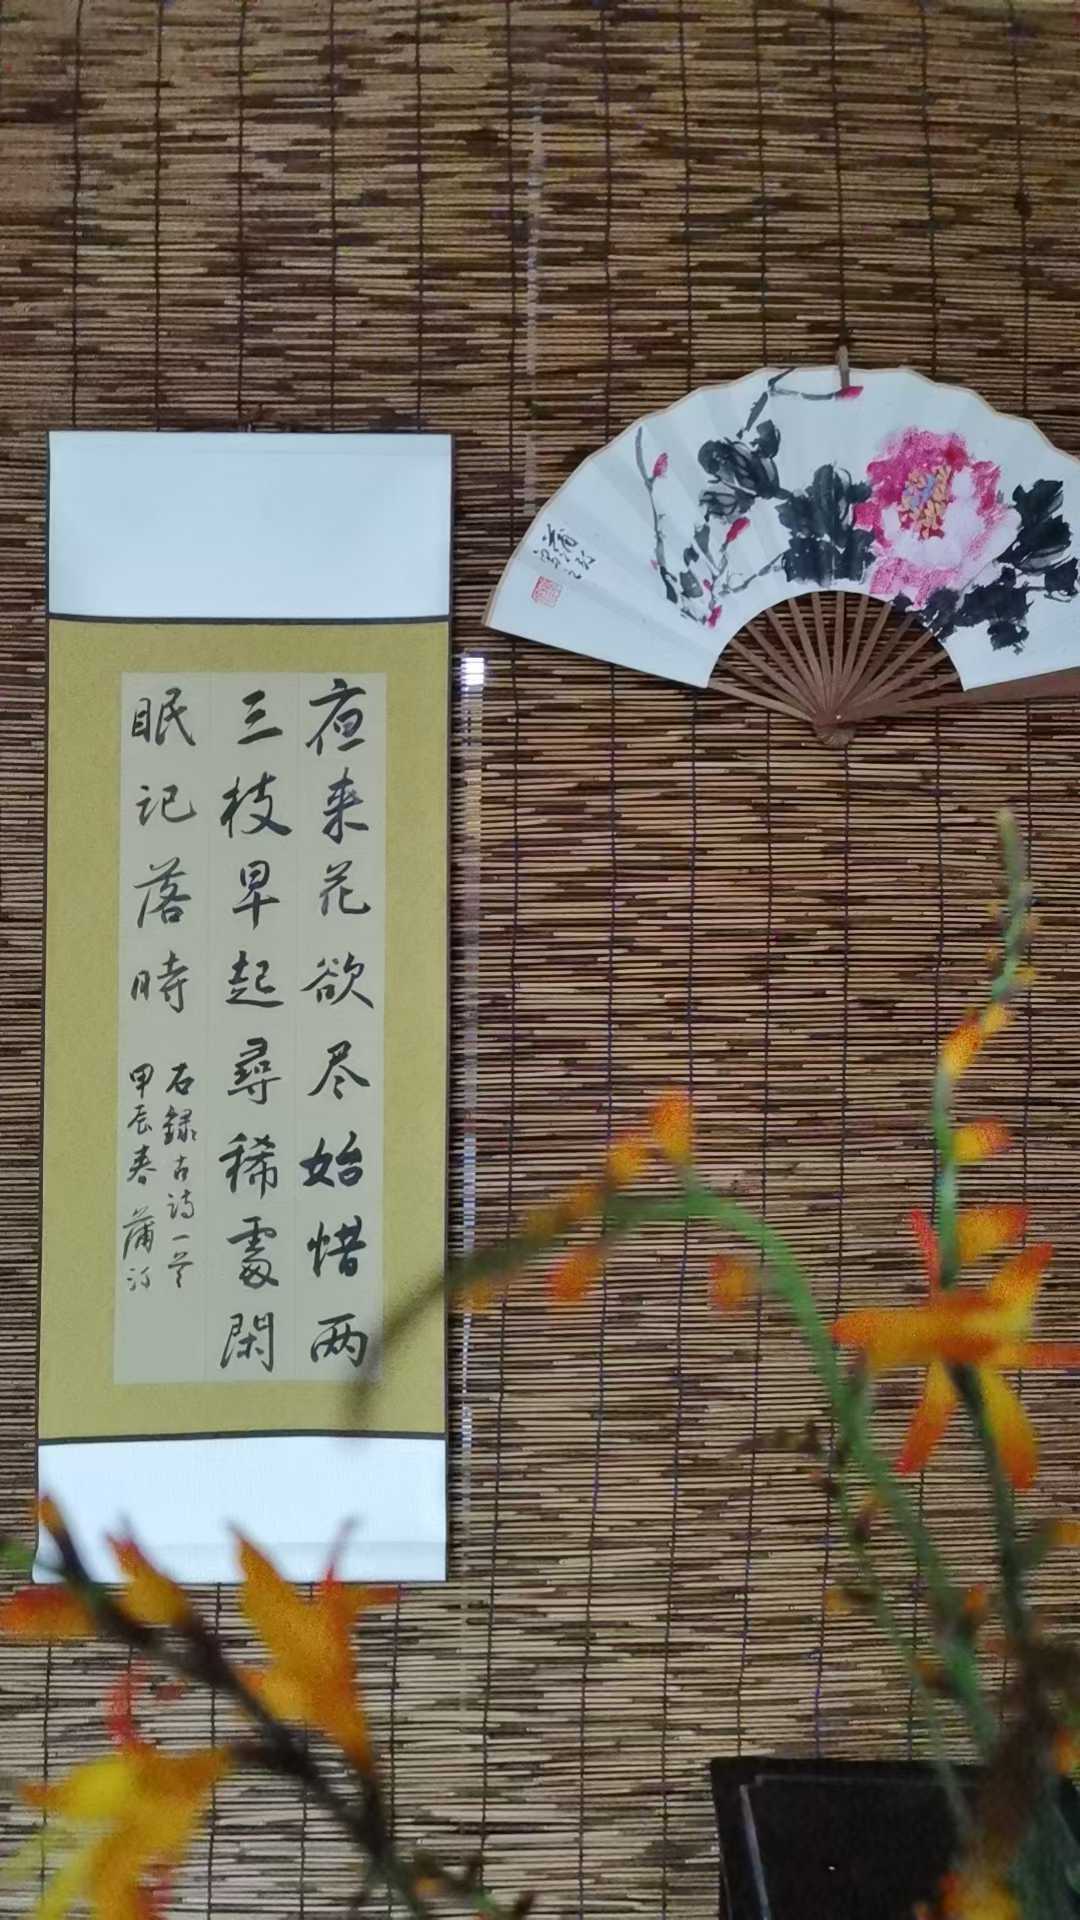 夜来花欲尽始惜两
三枝早起尋稀處閑
眠記落時
右録古詩一首
甲辰春 蒲汀